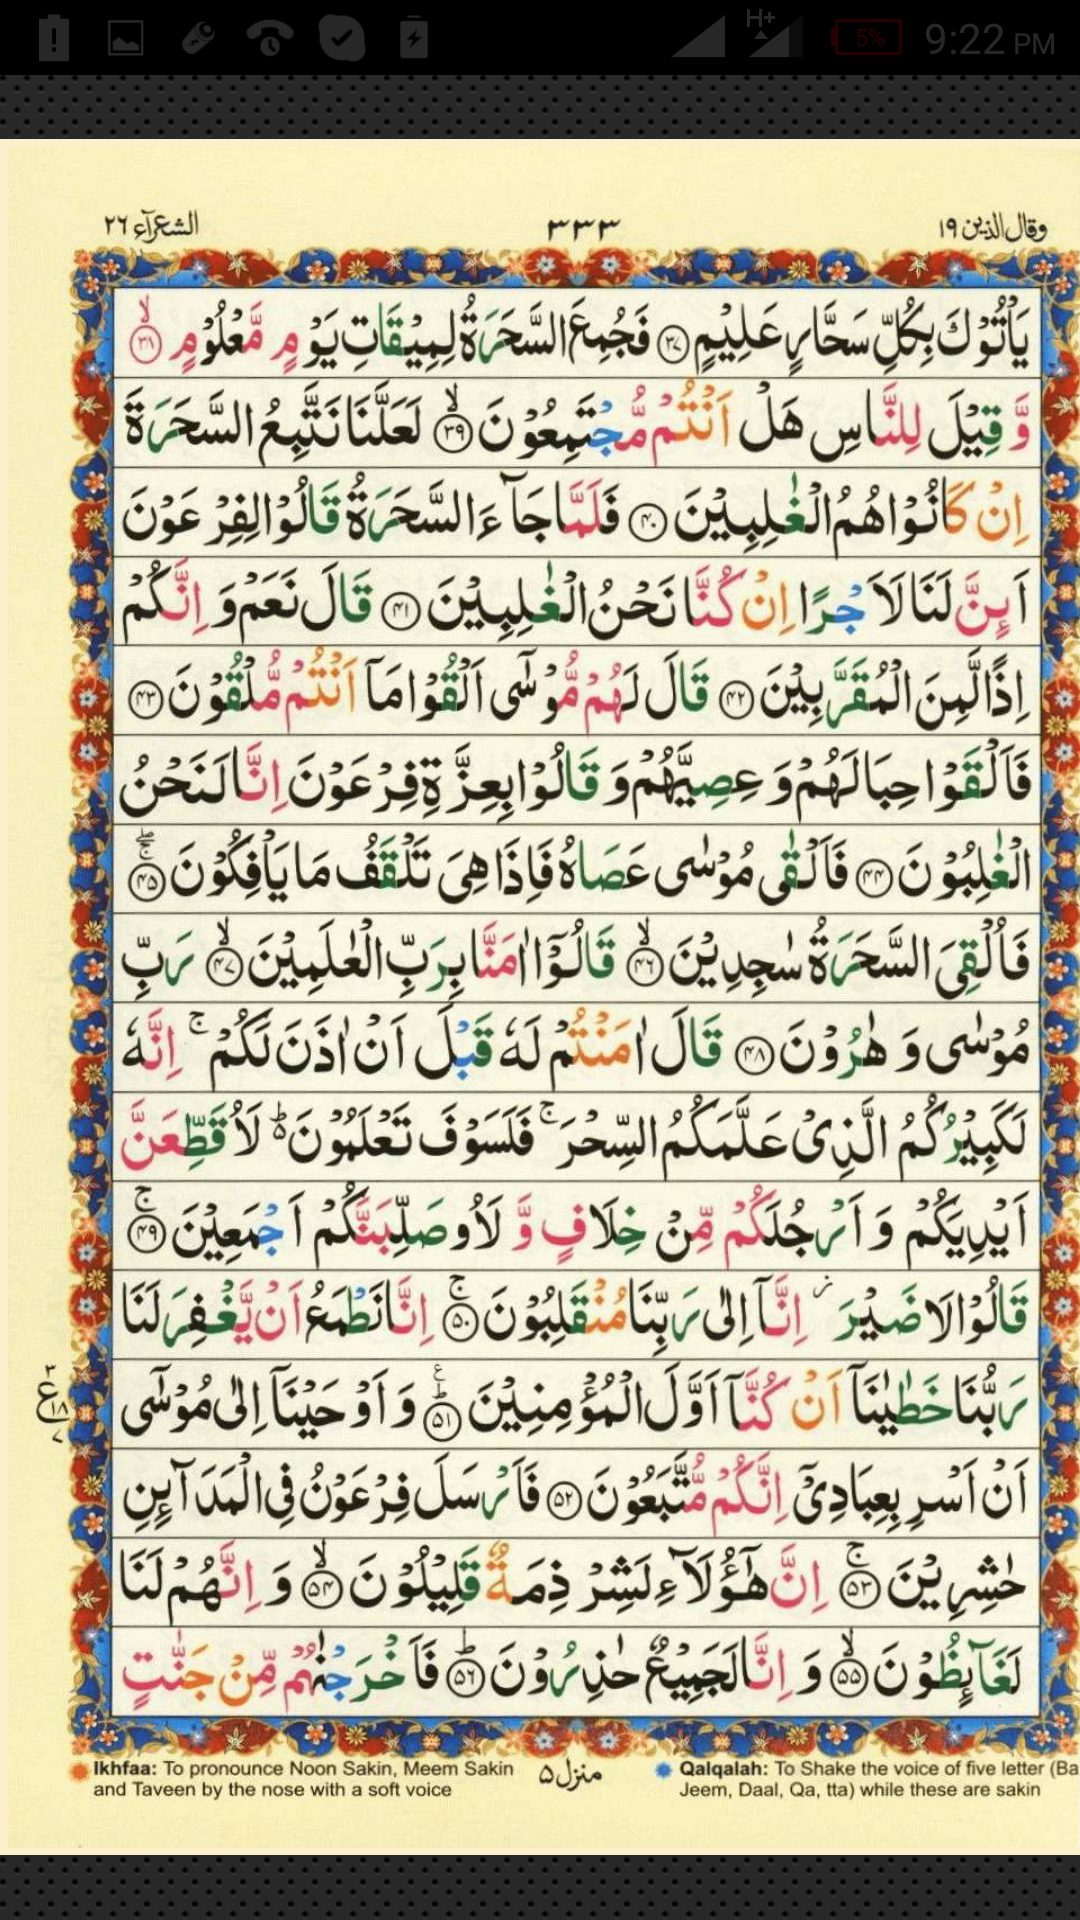 9:22 PM
5%
H+
وقال الذین ١٩
٣٣٣
الشعرآء ٢٦
یَاْتُوْكَ بِكُلِّ سَحَّارٍ عَلِیْمٍ ٣٧ فَجُمِعَ السَّحَرَةُ لِمِیْقَاتِ یَوْمٍ مَّعْلُوْمٍ ۙ٣٨
وَّ قِیْلَ لِلنَّاسِ هَلْ اَنْتُمْ مُّجْتَمِعُوْنَ ۙ٣٩ لَعَلَّنَا نَتَّبِعُ السَّحَرَةَ
اِنْ كَانُوْا هُمُ الْغٰلِبِیْنَ ٤٠ فَلَمَّا جَآءَ السَّحَرَةُ قَالُوْا لِفِرْعَوْنَ
اَىِٕنَّ لَنَا لَاَجْرًا اِنْ كُنَّا نَحْنُ الْغٰلِبِیْنَ ٤١ قَالَ نَعَمْ وَ اِنَّكُمْ
اِذًا لَّمِنَ الْمُقَرَّبِیْنَ ٤٢ قَالَ لَهُمْ مُّوْسٰۤى اَلْقُوْا مَاۤ اَنْتُمْ مُّلْقُوْنَ ٤٣
فَاَلْقَوْا حِبَالَهُمْ وَ عِصِیَّهُمْ وَ قَالُوْا بِعِزَّةِ فِرْعَوْنَ اِنَّا لَنَحْنُ
الْغٰلِبُوْنَ ٤٤ فَاَلْقٰى مُوْسٰى عَصَاهُ فَاِذَا هِیَ تَلْقَفُ مَا یَاْفِكُوْنَ ۚۖ٤٥
فَاُلْقِیَ السَّحَرَةُ سٰجِدِیْنَ ۙ٤٦ قَالُوْۤا اٰمَنَّا بِرَبِّ الْعٰلَمِیْنَ ۙ٤٧ رَبِّ
مُوْسٰى وَ هٰرُوْنَ ٤٨ قَالَ اٰمَنْتُمْ لَهٗ قَبْلَ اَنْ اٰذَنَ لَكُمْ ۚ اِنَّهٗ
لَكَبِیْرُكُمُ الَّذِیْ عَلَّمَكُمُ السِّحْرَ ۚ فَلَسَوْفَ تَعْلَمُوْنَ ؕ۬ لَاُقَطِّعَنَّ
اَیْدِیَكُمْ وَ اَرْجُلَكُمْ مِّنْ خِلَافٍ وَّ لَاُوصَلِّبَنَّكُمْ اَجْمَعِیْنَ ۚ٤٩
قَالُوْا لَا ضَیْرَ ؗ اِنَّاۤ اِلٰى رَبِّنَا مُنْقَلِبُوْنَ ۚ٥٠ اِنَّا نَطْمَعُ اَنْ یَّغْفِرَ لَنَا
رَبُّنَا خَطٰیٰنَاۤ اَنْ كُنَّاۤ اَوَّلَ الْمُؤْمِنِیْنَ ؕ٥١ وَ اَوْحَیْنَاۤ اِلٰى مُوْسٰۤى
٣
ع
١٨
٧
اَنْ اَسْرِ بِعِبَادِیْۤ اِنَّكُمْ مُّتَّبَعُوْنَ ٥٢ فَاَرْسَلَ فِرْعَوْنُ فِی الْمَدَآىِٕنِ
حٰشِرِیْنَ ۚ٥٣ اِنَّ هٰۤؤُلَآءِ لَشِرْذِمَةٌ قَلِیْلُوْنَ ۙ٥٤ وَ اِنَّهُمْ لَنَا
لَغَآىِٕظُوْنَ ۙ٥٥ وَ اِنَّا لَجَمِیْعٌ حٰذِرُوْنَ ؕ٥٦ فَاَخْرَجْنٰهُمْ مِّنْ جَنّٰتٍ
Ikhfaa: To pronounce Noon Sakin, Meem Sakin
and Taveen by the nose with a soft voice
منزل ٥
Qalqalah: To Shake the voice of five letter (Ba
Jeem, Daal, Qa, tta) while these are sakin